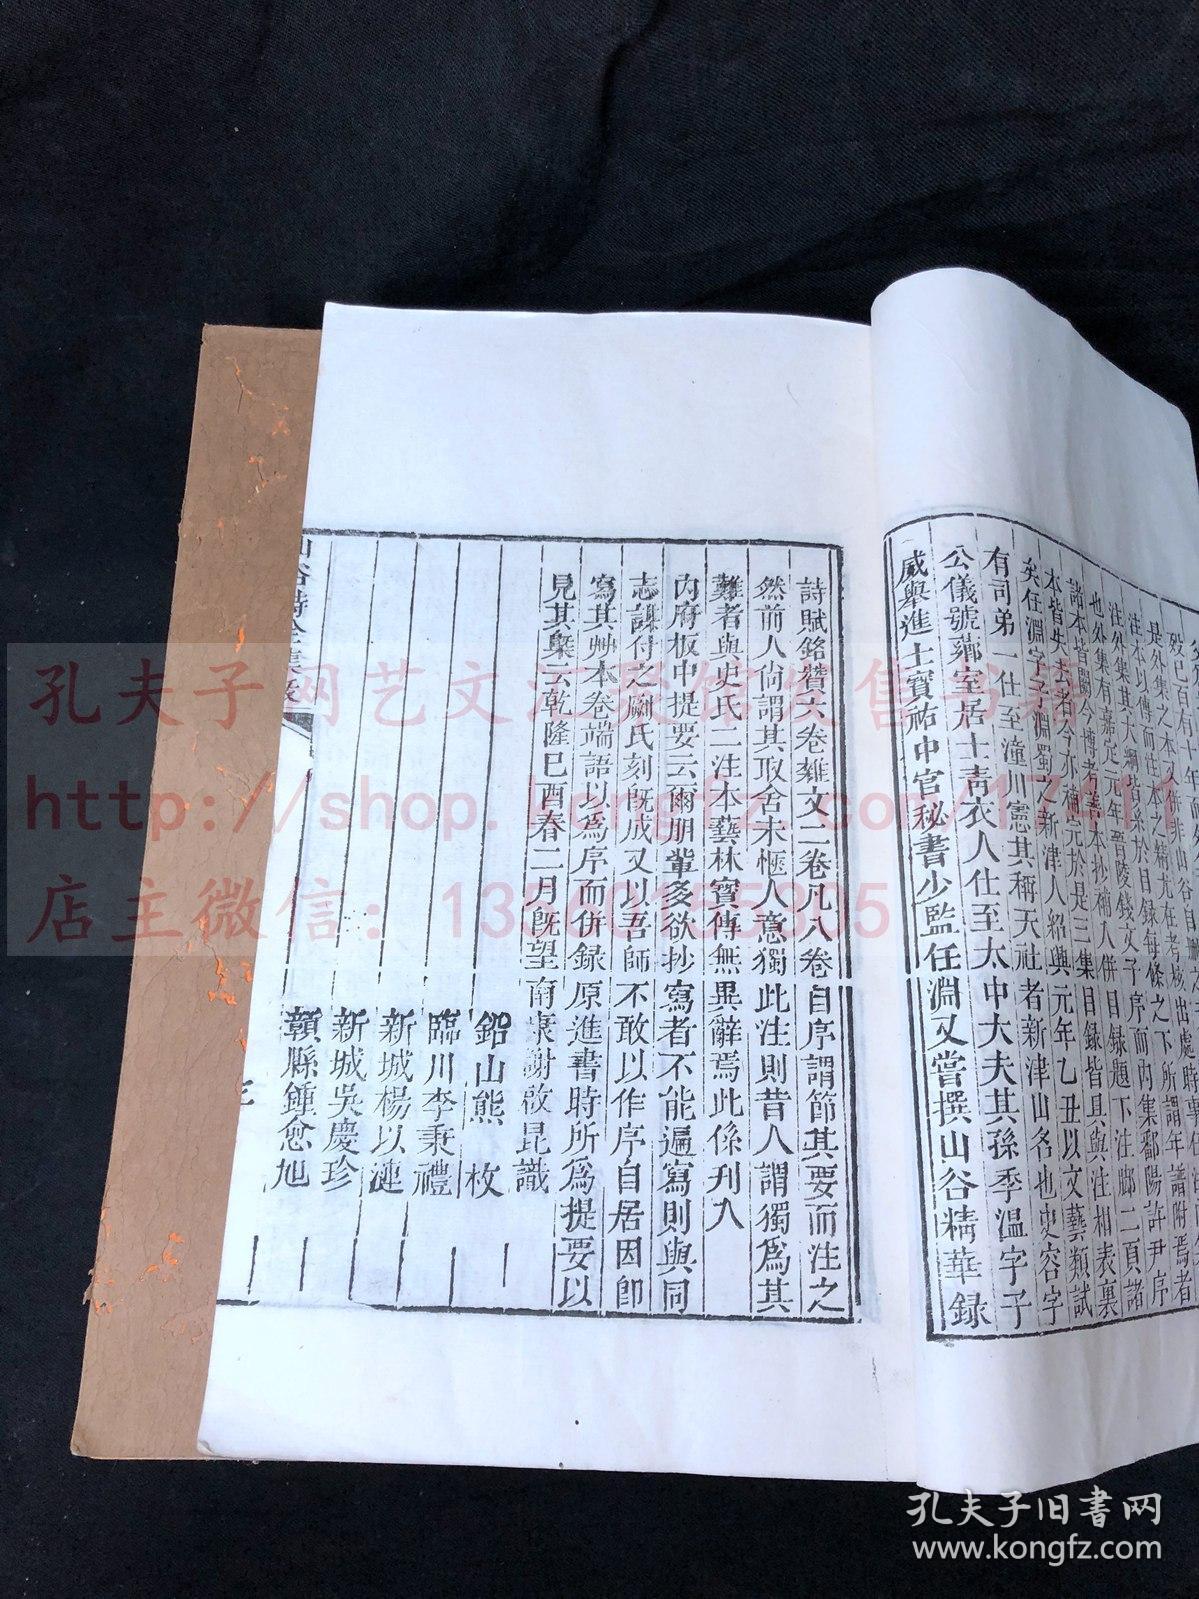 殁已百有十年
是外集之本又併非山谷自
注本以傳而注本之精尤在考核出處時
注外集其大綱皆系於目錄每條之下所謂年譜附焉者
也外集有嘉定元年晉陵錢文子序而內集鄱陽許尹序
諸本皆闕今博考善本抄補入併目錄題下注郎二頁諸
本皆失去者今亦補完於是三集目錄皆具與注相表裏
矣任淵字子淵蜀之新津人紹興元年乙丑以文藝類試
有司第一仕至潼川憲其稱天社者新津山名也史容字
公儀號薌室居士青衣人仕至太中大夫其孫季溫字子
威舉進士寶祐中官秘書少監任淵又嘗撰山谷精華錄
詩賦銘贊六卷雜文二卷凡八卷自序謂節其要而注之
然前人尚謂其取舍未愜人意獨此注則昔人謂獨為其
難者與史氏二注本藝林寶傳無異辭焉此係刊入
內府板中提要云爾朋輩多欲抄寫者不能遍寫則與同
志謀付之剞氏刻既成又以吾師不敢以作序自居因卽
寫其艸本卷端語以為序而併錄原進書時所為提要以
見其槩云乾隆巳酉春二月既望南康謝啟昆識
鉛山熊 枚
臨川李秉禮
新城楊以漣
新城吳慶珍
贛縣鍾愈旭
山谷詩全集
三
孔夫子网艺文汇聚馆发售书籍
http://shop.kongfz.com/17411
店主微信：
孔夫子旧书网
www.kongfz.com